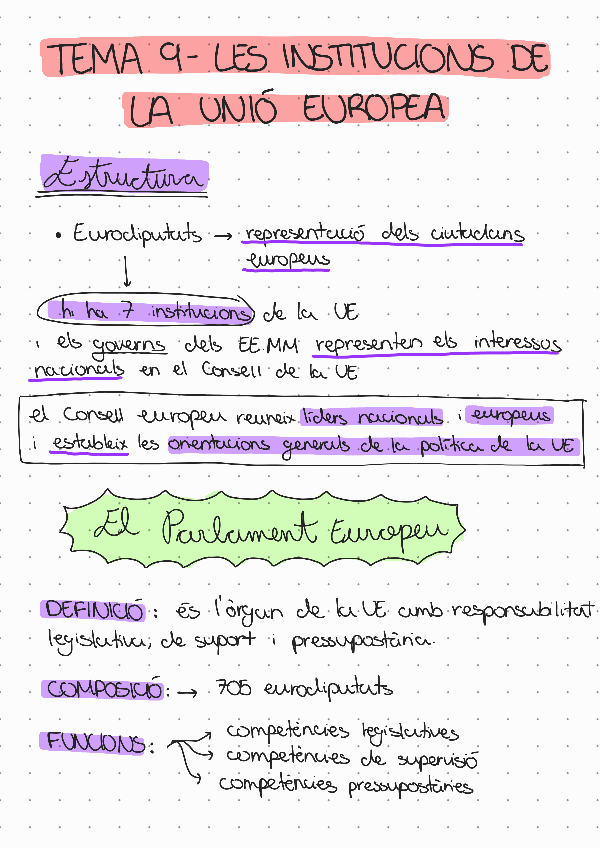 TEMA 9- LES INSTITUCIONS DE
LA UNIÓ EUROPEA
Estructura
• Eurodiputats → representació dels ciutadans
europeus
↓
hi ha 7 institucions de la UE
i els governs dels EE.MM representen els interessos
nacionals en el Consell de la UE
el Consell europeu reuneix líders nacionals i europeus
i estableix les orientacions generals de la política de la UE
El Parlament Europeu
DEFINICIÓ: és l'òrgan de la UE amb responsabilitat
legislativa, de suport i pressupostària.
COMPOSICIÓ: → 705 eurodiputats
FUNCIONS: → competències legislatives
→ competències de supervisió
→ competències pressupostàries